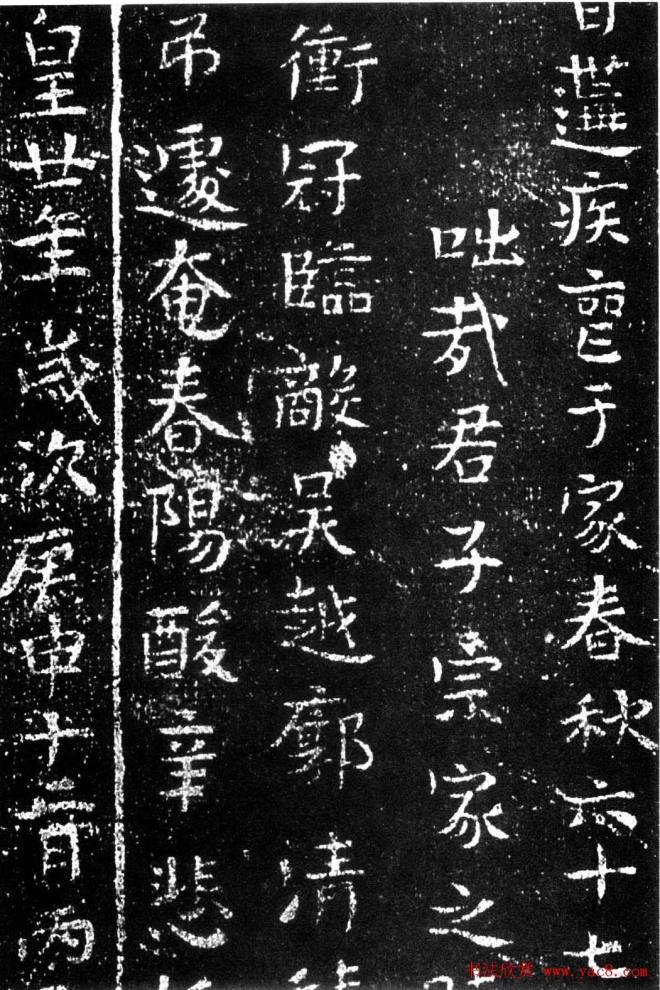 日遘疾薨于家春秋六十七
咄哉君子宗家之
衝冠臨敵吴越廓清
吊邃奄春陽酸辛悲
皇廿年歲次庚申十二月丙
书法欣赏 www.yac8.com